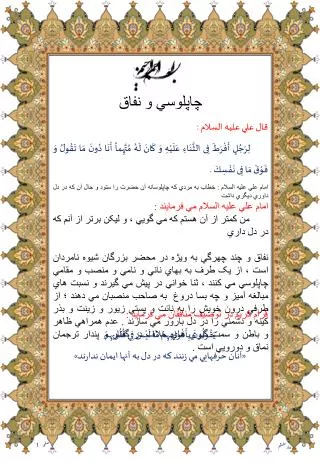 چاپلوسي و نفاق
قال علي عليه السلام :
لِرَجُلٍ أَفْرَطَ فِي الثَّنَاءِ عَلَيْهِ وَ كَانَ لَهُ مُتَّهِماً أَنَا دُونَ مَا تَقُولُ وَ
فَوْقَ مَا فِي نَفْسِكَ .
امام علي عليه السلام : خطاب به مردي كه چاپلوسانه آن حضرت را ستود و حال آن كه در دل
داوري ديگري داشت
امام علي عليه السلام مي فرمايند :
من كمتر از آن هستم كه مي گويي ، و ليكن برتر از آنم كه
در دل داري
نفاق و چند چهرگي به ويژه در محضر بزرگان شيوه نامردان
است ، از يك طرف به بهاي نائي و نامي و منصب و مقامي
چاپلوسي مي كنند ، ثنا خواني در پيش مي گيرند و نسبت هاي
مبالغه آميز و چه بسا دروغ به صاحب منصبان مي دهند ؛ از
طرفي درون خويش را به نائت و پستي زيور و زينت و بذر
كينه و دشمني را در دل بارور مي سازند . عدم همراهي ظاهر
و باطن و سمت گيري هاي خلاف گفتار و پندار ترجمان
نفاق و دورويي است .
«آنان حرفهايي مي زنند كه در دل به آنها ايمان ندارند»